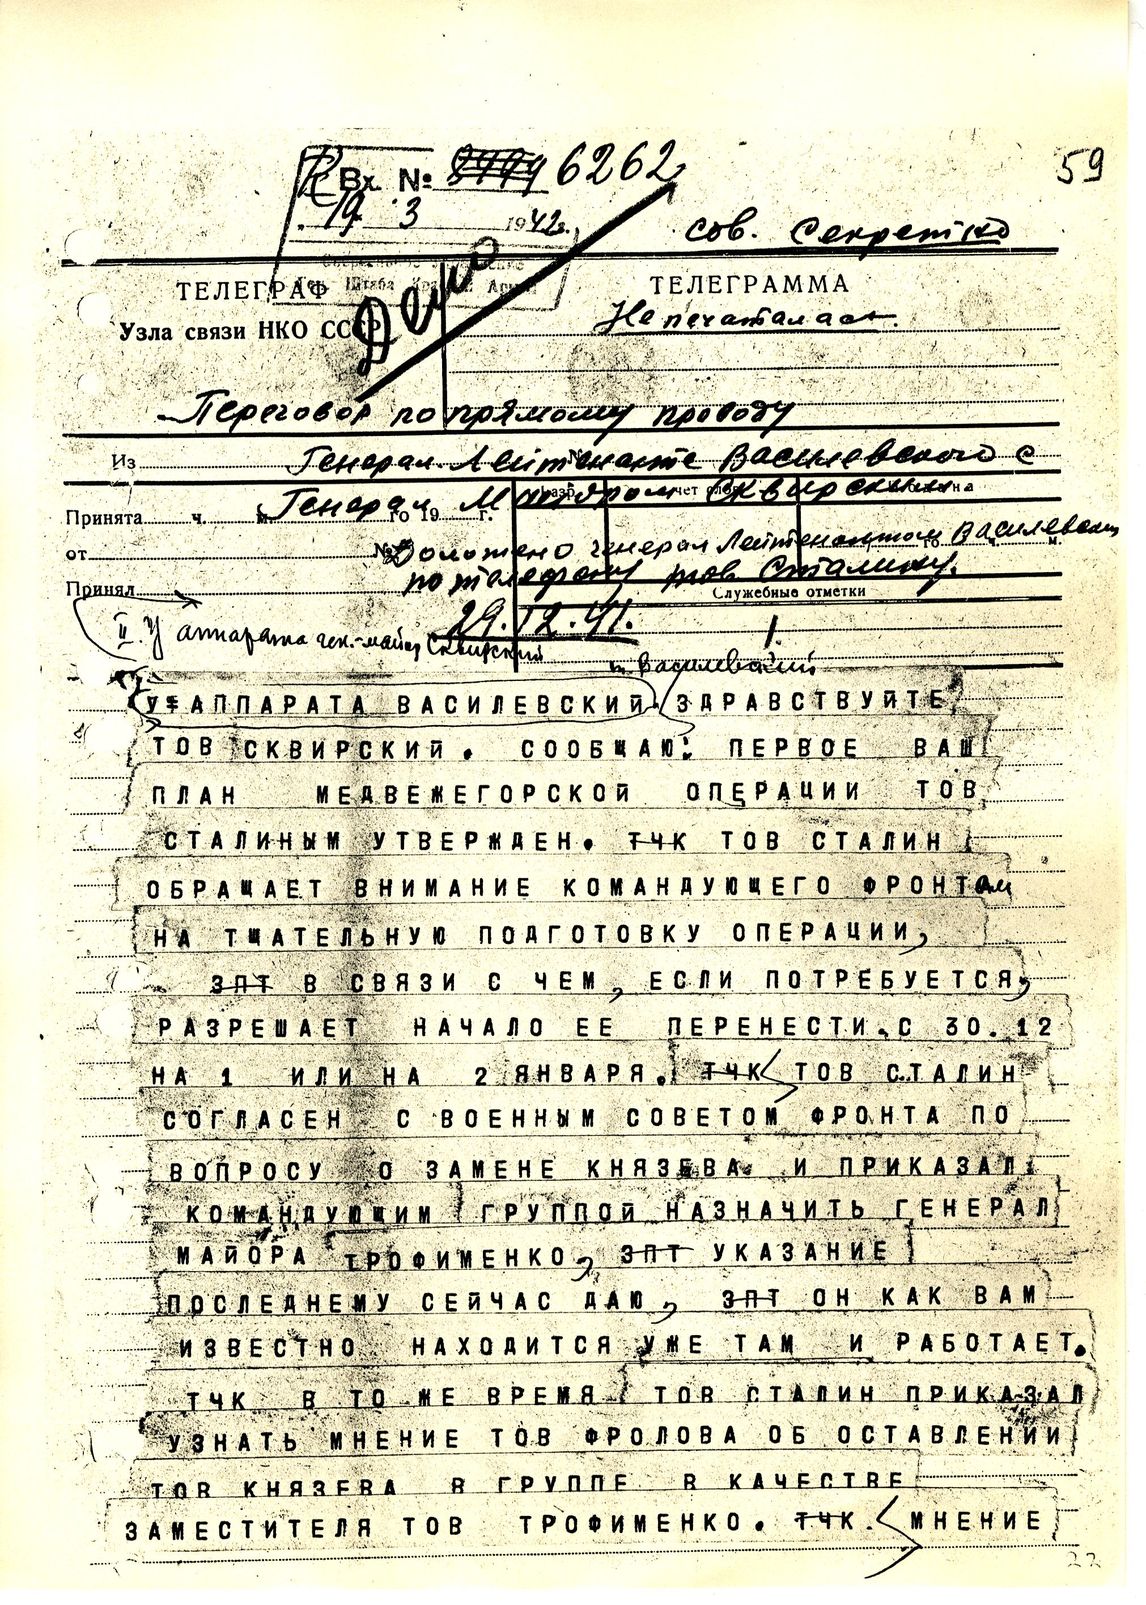 59
Вх. № 6262
19. 3 1942г.
сов. секретно
Дело
ТЕЛЕГРАФ
ТЕЛЕГРАММА
Узла связи НКО СССР
Не печаталась.
Переговор по прямому проводу
Из Генерал-Лейтенанта Василевского с
Генерал М Сквирским
Принята ч. м. го 19 г.
от № Доложено генерал Лейтенантом Василевским
по телефону тов. Сталину.
Принял
Служебные отметки
29.12.41.
II У аппарата ген.-майор Сквирский
I.
т. Василевский
У АППАРАТА ВАСИЛЕВСКИЙ. ЗДРАВСТВУЙТЕ
ТОВ СКВИРСКИЙ. СООБЩАЮ: ПЕРВОЕ ВАШ
ПЛАН МЕДВЕЖЕГОРСКОЙ ОПЕРАЦИИ ТОВ
СТАЛИНЫМ УТВЕРЖДЕН. ТЧК ТОВ СТАЛИН
ОБРАЩАЕТ ВНИМАНИЕ КОМАНДУЮЩЕГО ФРОНТОМ
НА ТЩАТЕЛЬНУЮ ПОДГОТОВКУ ОПЕРАЦИИ,
ЗПТ В СВЯЗИ С ЧЕМ, ЕСЛИ ПОТРЕБУЕТСЯ,
РАЗРЕШАЕТ НАЧАЛО ЕЕ ПЕРЕНЕСТИ С 30.12
НА 1 ИЛИ НА 2 ЯНВАРЯ. ТЧК ТОВ СТАЛИН
СОГЛАСЕН С ВОЕННЫМ СОВЕТОМ ФРОНТА ПО
ВОПРОСУ О ЗАМЕНЕ КНЯЗЕВА И ПРИКАЗАЛ
КОМАНДУЮЩИМ ГРУППОЙ НАЗНАЧИТЬ ГЕНЕРАЛ
МАЙОРА ТРОФИМЕНКО, ЗПТ УКАЗАНИЕ
ПОСЛЕДНЕМУ СЕЙЧАС ДАЮ, ЗПТ ОН КАК ВАМ
ИЗВЕСТНО НАХОДИТСЯ УЖЕ ТАМ И РАБОТАЕТ.
ТЧК В ТО ЖЕ ВРЕМЯ ТОВ СТАЛИН ПРИКАЗАЛ
УЗНАТЬ МНЕНИЕ ТОВ ФРОЛОВА ОБ ОСТАВЛЕНИИ
ТОВ КНЯЗЕВА В ГРУППЕ В КАЧЕСТВЕ
ЗАМЕСТИТЕЛЯ ТОВ ТРОФИМЕНКО. ТЧК МНЕНИЕ
22